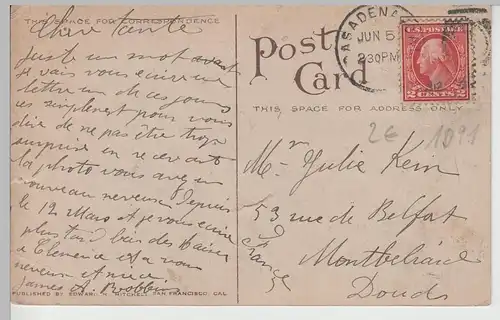 THIS SPACE FOR CORRESPONDENCE
Chère tante
Juste un mot avant
je vais vous ecrire une
lettre un de ces jours
ces simplement pour vous
dire de ne pas être trop
surprise en recevant
la photo vous avez un
nouveau neveu depuis
le 12 Mars et je vous ecrire
plus tard bais des Baiser
a Clemence et a vous
neveu et niece
James A. Robbin
PUBLISHED BY EDWARD H. MITCHELL, SAN FRANCISCO, CAL.
Post
Card
THIS SPACE FOR ADDRESS ONLY
PASADENA
JUN 5
2:30PM
12
U.S. POSTAGE
2 CENTS 2
2€ 1091
Mme Julie Kein
53 rue de Belfort
Montbeliard
Doubs
France